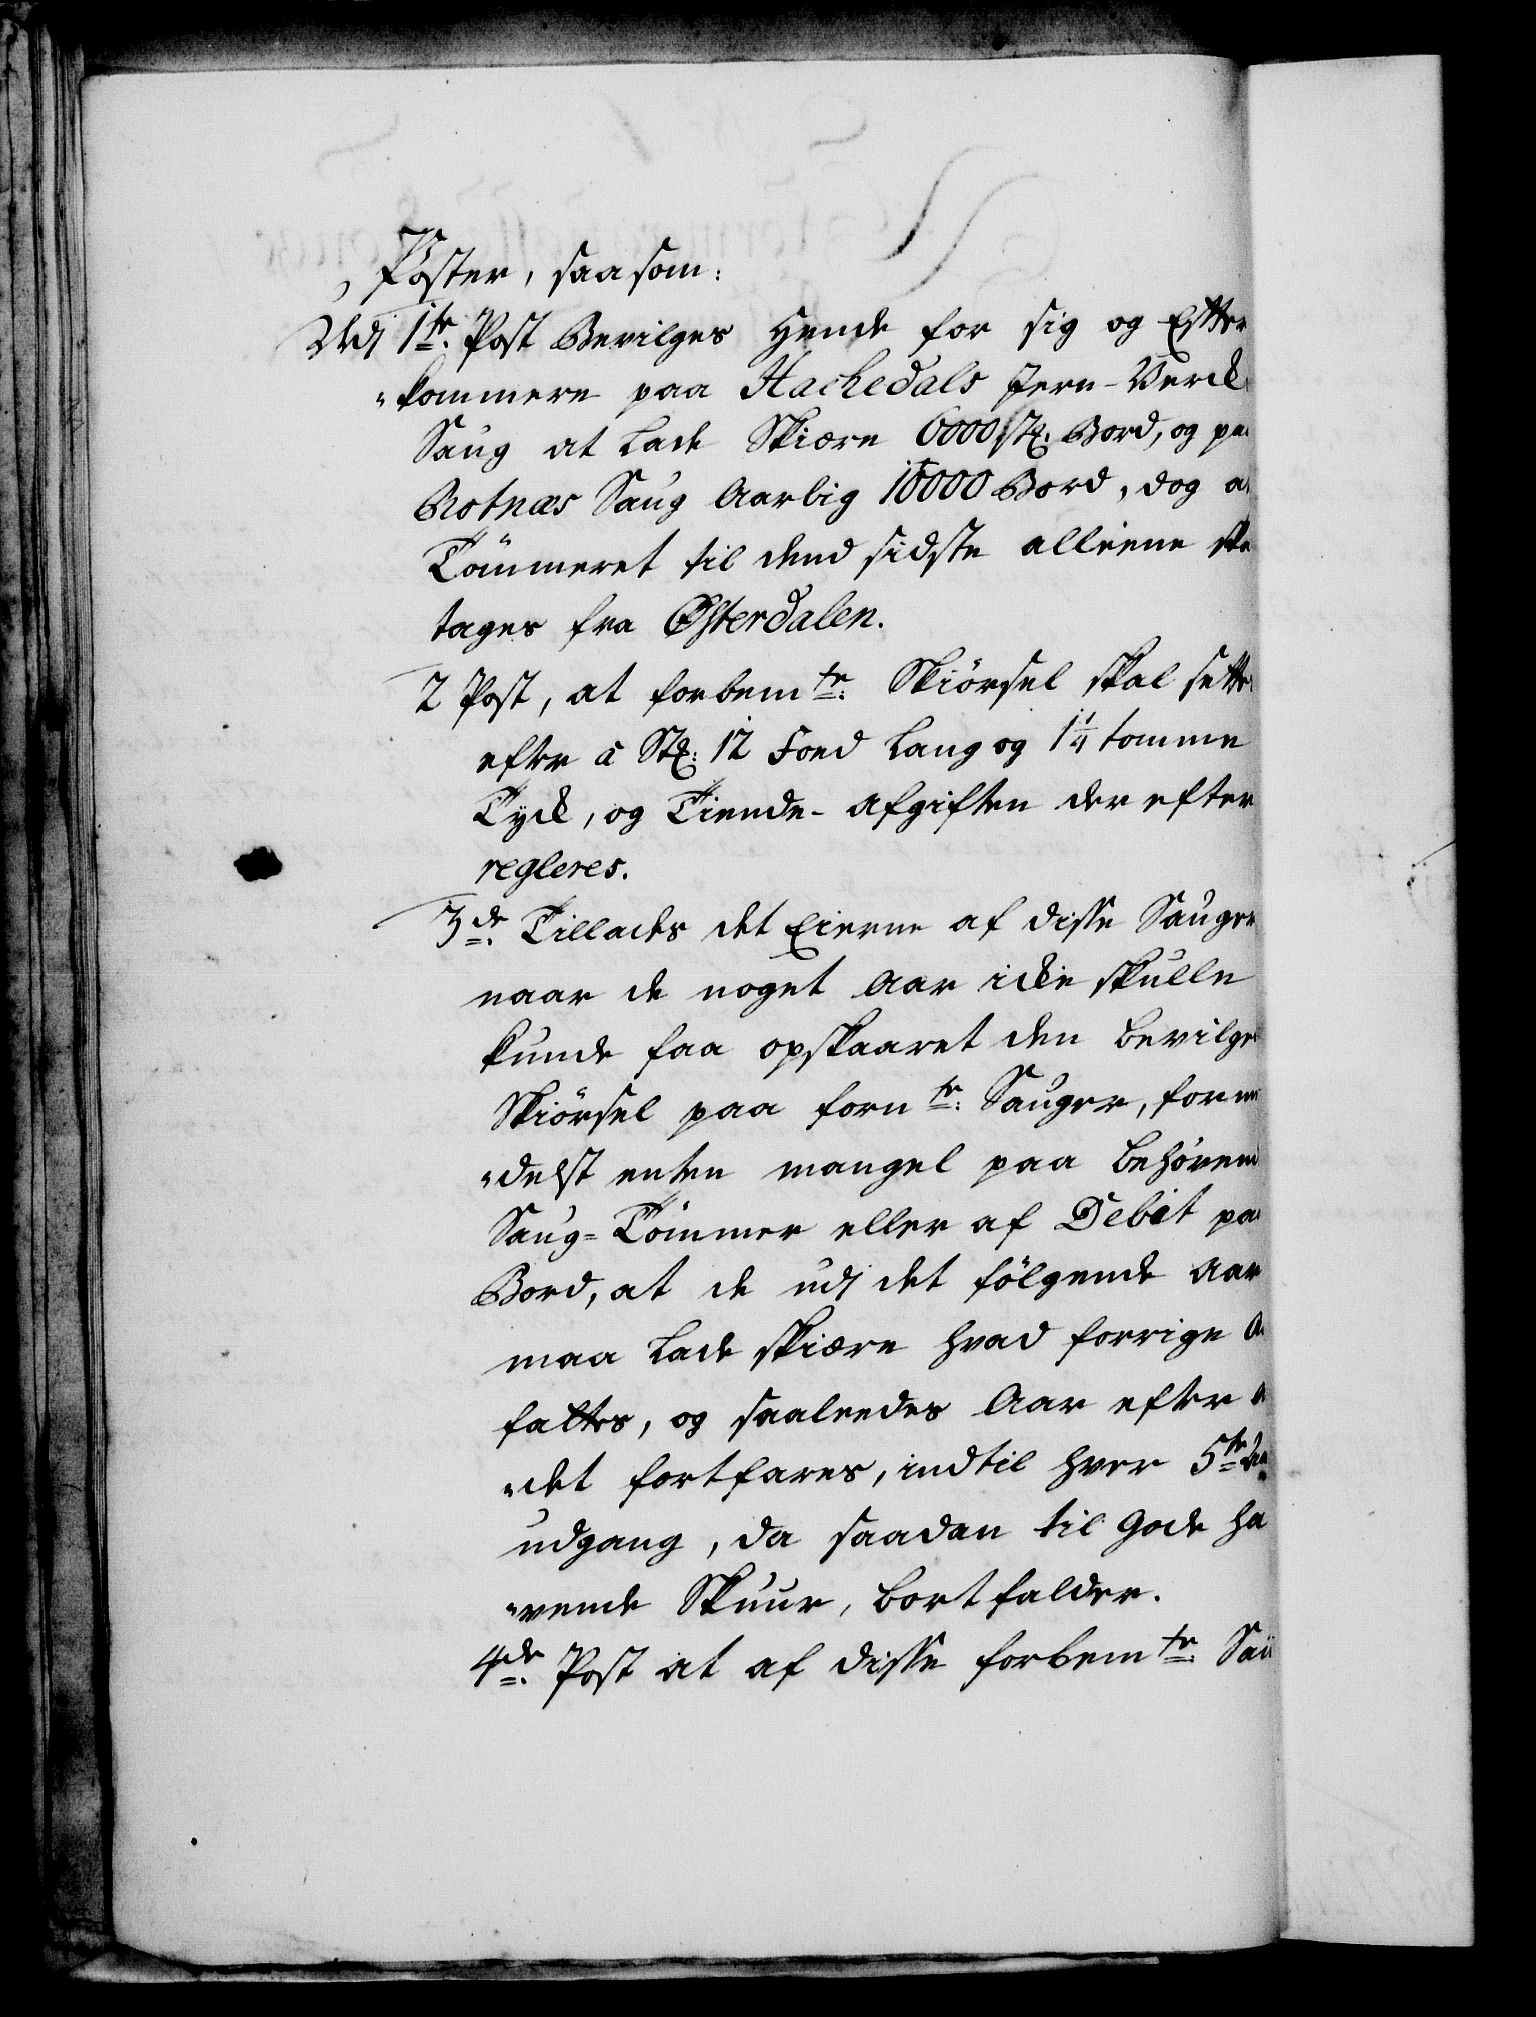 Poster, saasom:
Udj 1te. Post Bevilges hende for sig og Efter
"kommere paa Hackedals Jern-Verck
Saug at lade Skiære 6000 stk. Bord, og paa
Rotnæs Saug Aarlig 16000 Bord, dog a
Tömmeret til dend sidste alleene ska
tages fra Østerdalen.
2 Post, at forbemte: Skiörsel skal sette
efter á Stk: 12 Foed lang og 1 1/4 tomme
Tyck, og Tiende-afgiften der efter
regleres.
3de. Tillades det Eierne af disse Sauger
naar de noget Aar ickie skulle
kunde faa opskaaret den bevilge
Skiörsel paa fornte: Sauger, forme
"delst enten mangel paa behøvend
Saug-Tömmer eller af Debit pa
Bord, at de udj det fölgende Aar
maa lade skiære hvad forrige A
faltes, og saaleedes Aar efter a
"det fortfares, indtil hver 5te
udgang, da saadan til gode ha
"vende Skuur, bortfalder.
4de. Post at af disse forbemte: Sau